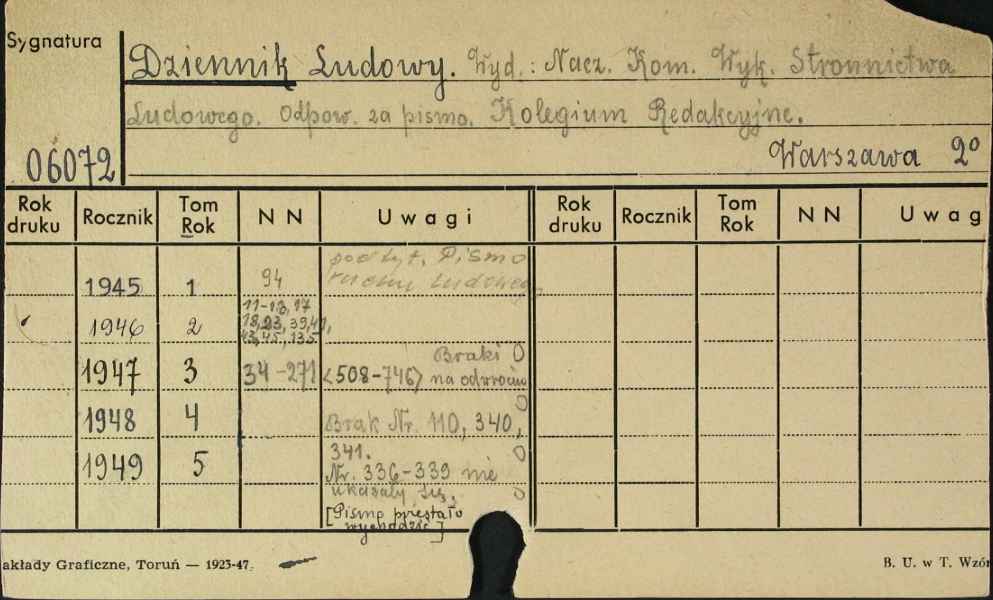 Sygnatura
Dziennik Ludowy. Wyd.: Nacz. Kom. Wyk. Stronnictwa
Ludowego. Odpow. za pismo. Kolegium Redakcyjne.
06072 Warszawa 2º
Rok druku Rocznik Tom Rok N N Uwagi Rok druku Rocznik Tom Rok N N Uwag
podtyt. Pismo
1945 1 94 ruchu Ludowego
11-13, 17
1946 2 18, 23, 39, 41,
43, 45, 135
Braki 0
1947 3 34-271 <508-746> na odwrocie
0
1948 4 Brak Nr. 110, 340,
341. 0
1949 5 Nr. 336-339 nie
ukazały się. 0
[Pismo przestało
wychodzić]
akłady Graficzne, Toruń — 1923-47. B. U. w T. Wzór